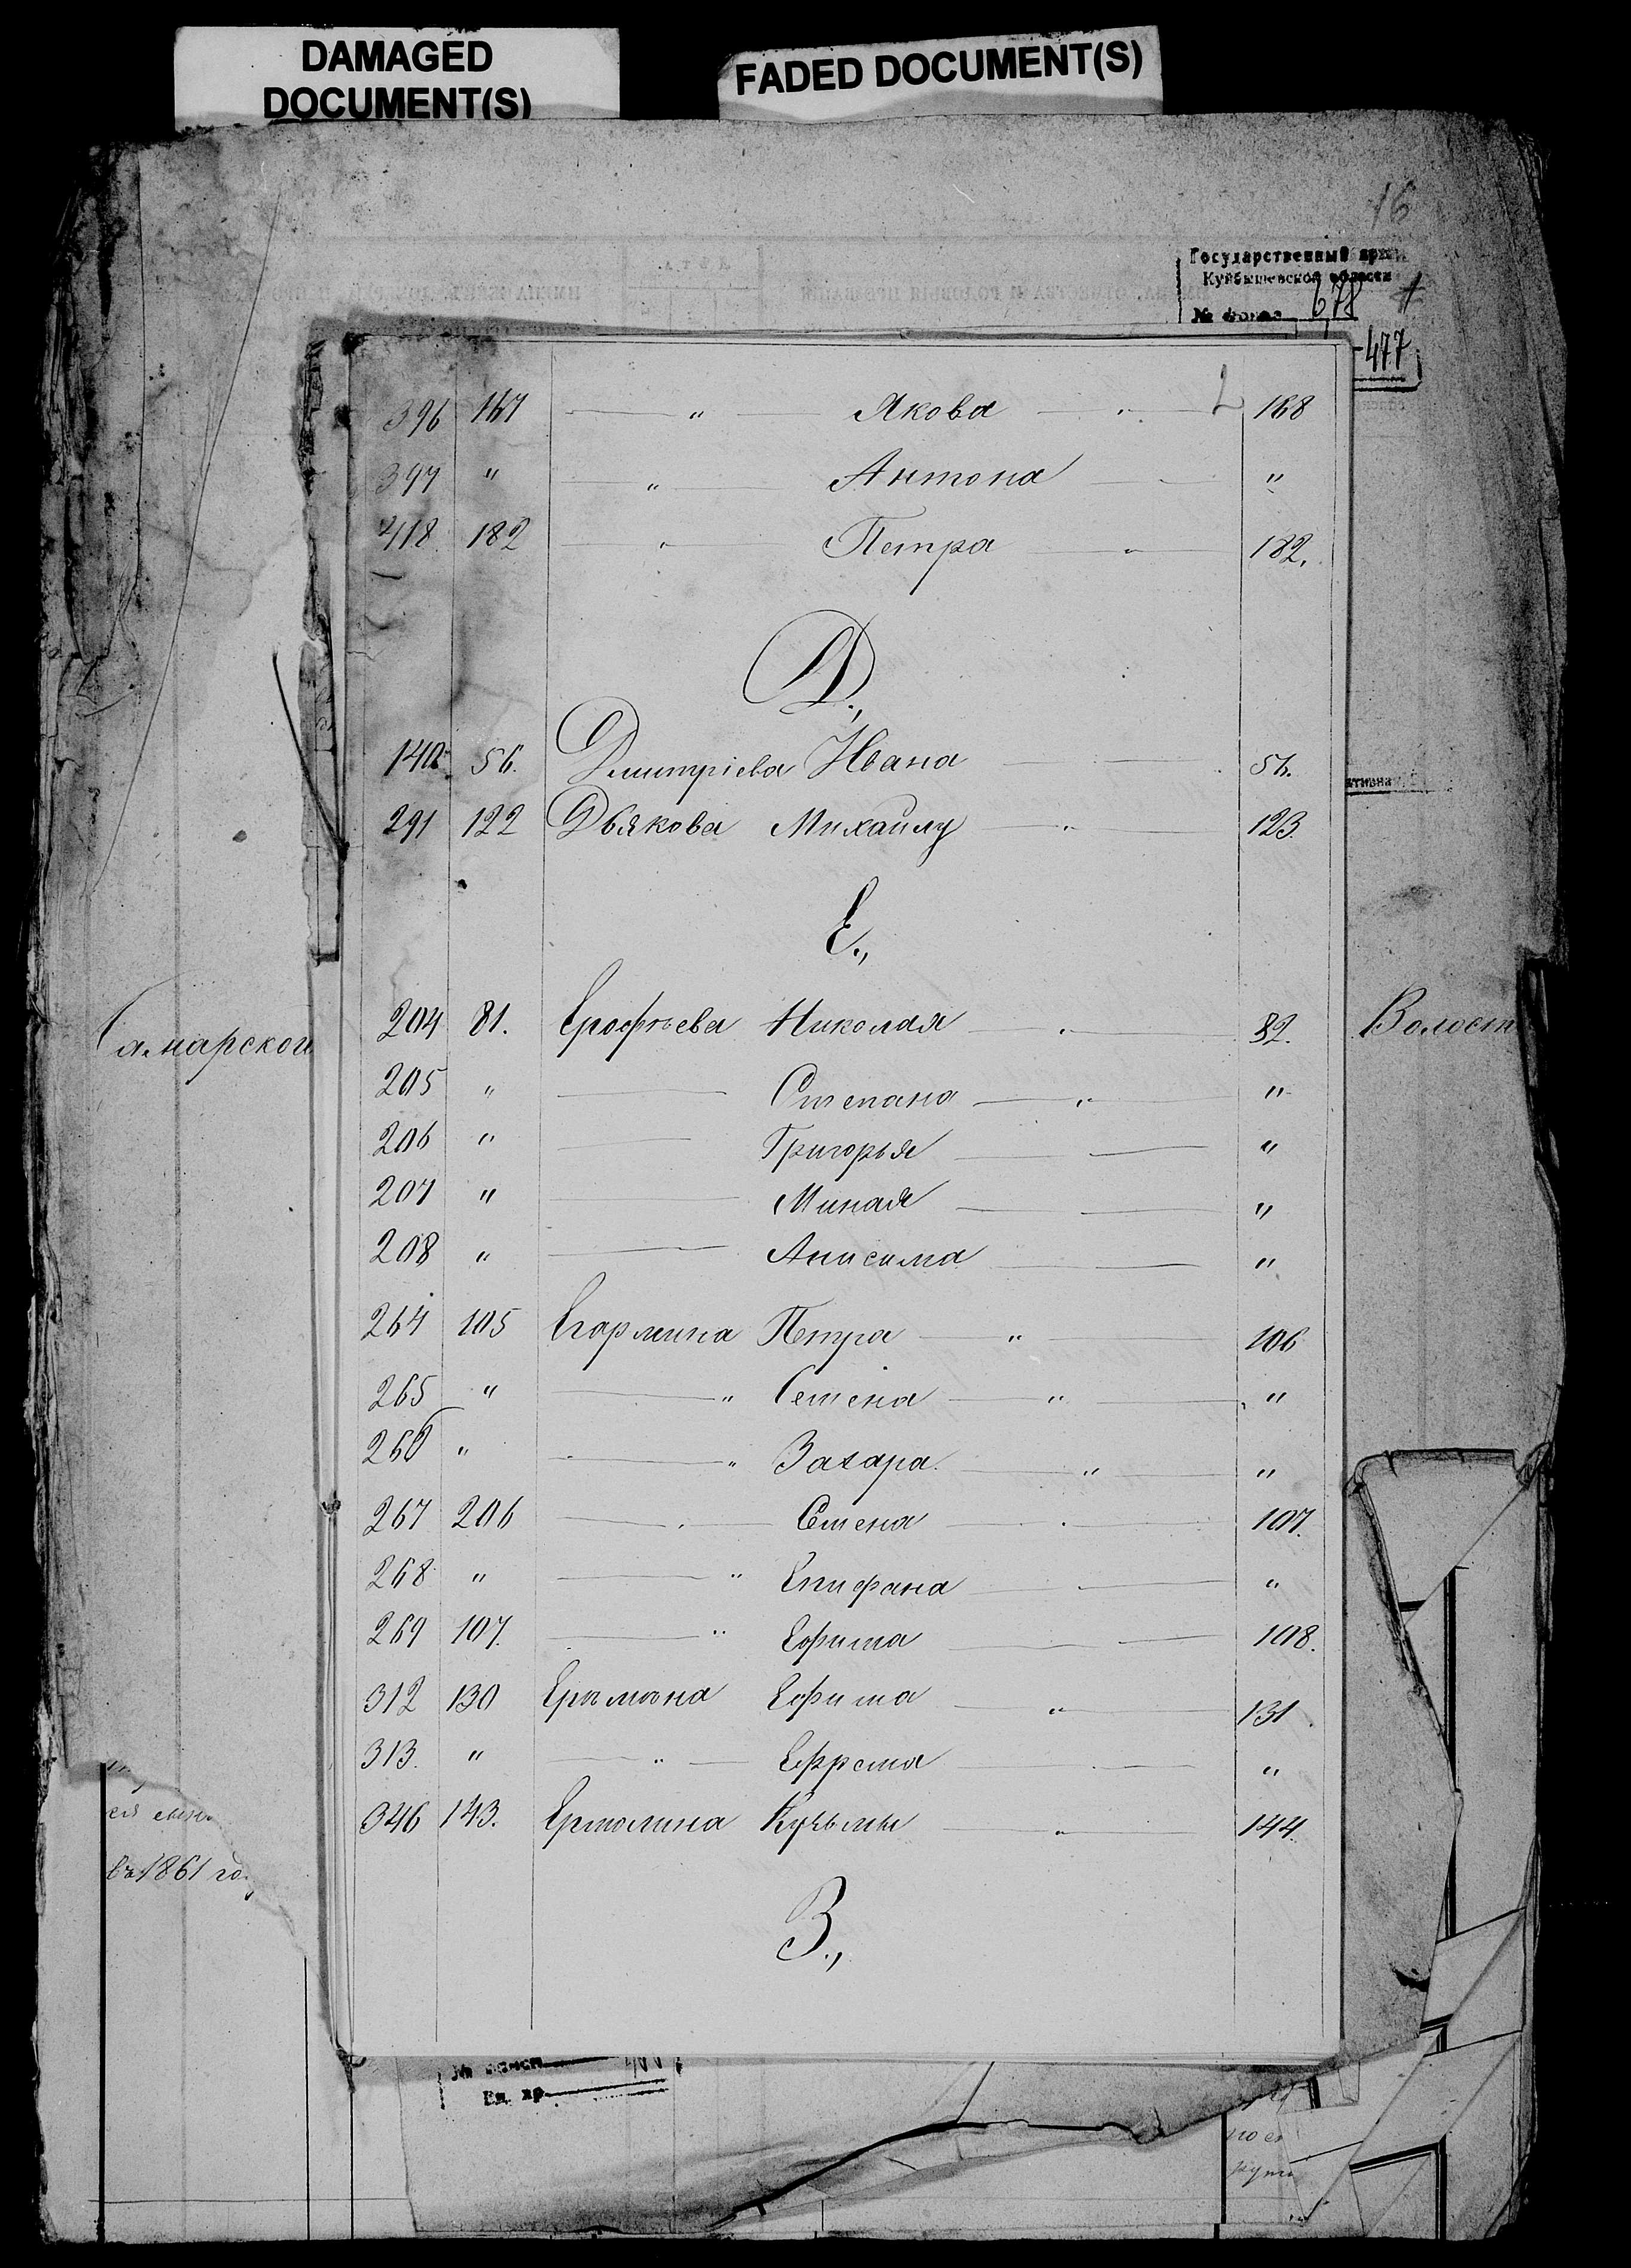 DAMAGED
DOCUMENT(S)
FADED DOCUMENT(S)
16
Государственный архив
Куйбышевской области
№ фонда 678
477
396 167 — " — Якова — " — 168
397 " — " — Антона — "
418 182 — " — Петра — " — 182.
Д.,
140 56. Дмитріева Ивана — 56.
291 122 Дьякова Михайлу — " — 123.
Е.,
204 81. Ерофѣева Николая — " — 82.
205 " — Степана — " — "
206 " — Григорья — "
207 " — Миная — "
208 " — Анисима — "
264 105 Егармина Петра — " — 106
265 " — " Семена — " — "
266 " — " Захара. — " — "
267 206 — " — Семена — " — 107.
268 " — " Епифана — " — "
269 107. — " Ефима — 108.
312 130 Ефима — " — 131.
313. " — " — Ефрема — "
346 143. Ермолина Кузьмы — " — 144.
З.,
Самарской
Волост
въ 1861 го
Ед. хр.